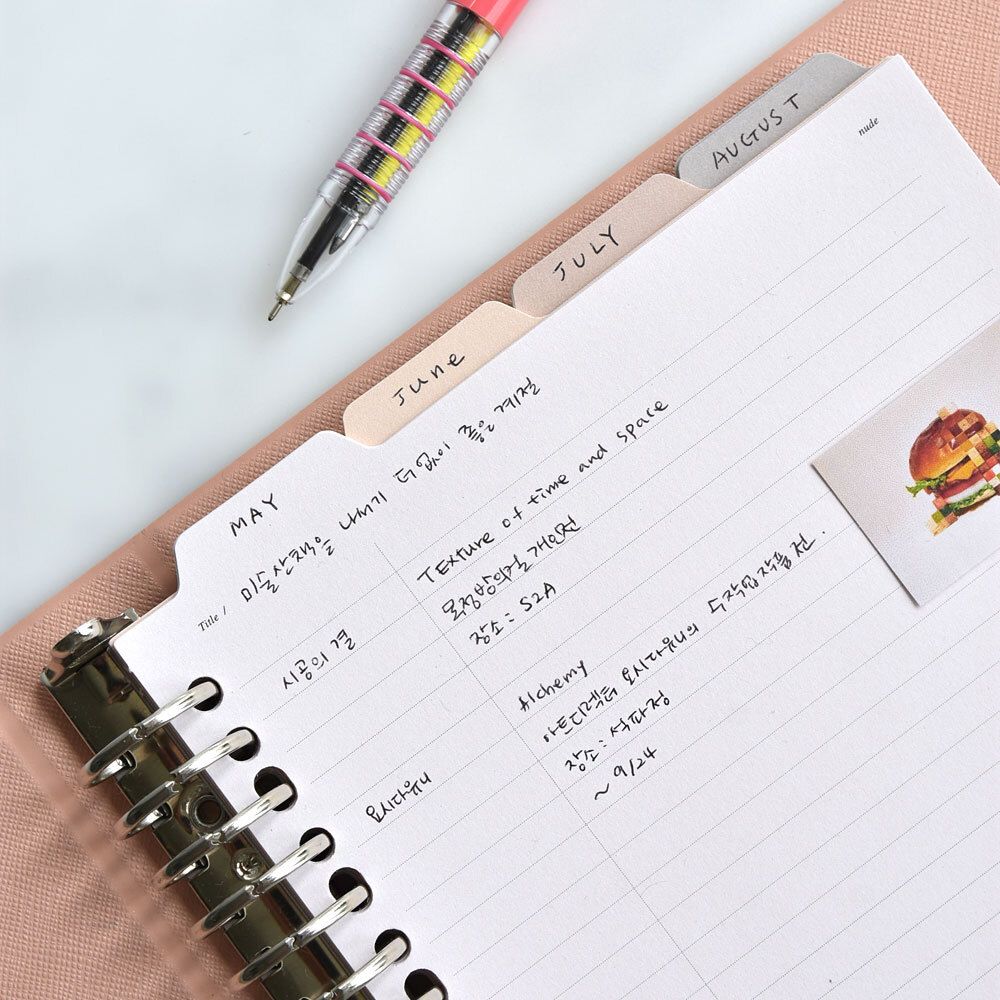 AUGUST
nude
JULY
June
MAY
Title / 미술산책을 나서기 더없이 좋은 계절
시공의 결
TExture of time and space
목정방의걸 개인전
장소 : S2A
요시다유니
Alchemy
아트디렉터 요시다유니의 수작업 작품전.
장소 : 석파정
~ 9/24